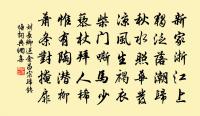 新家浙江上
獨泛落潮歸
秋水照華髮
涼風生褐衣
柴門嘶馬少
藜杖拜人稀
惟有陶潛柳
蕭條對掩扉
劉長卿送金昌宗歸錢